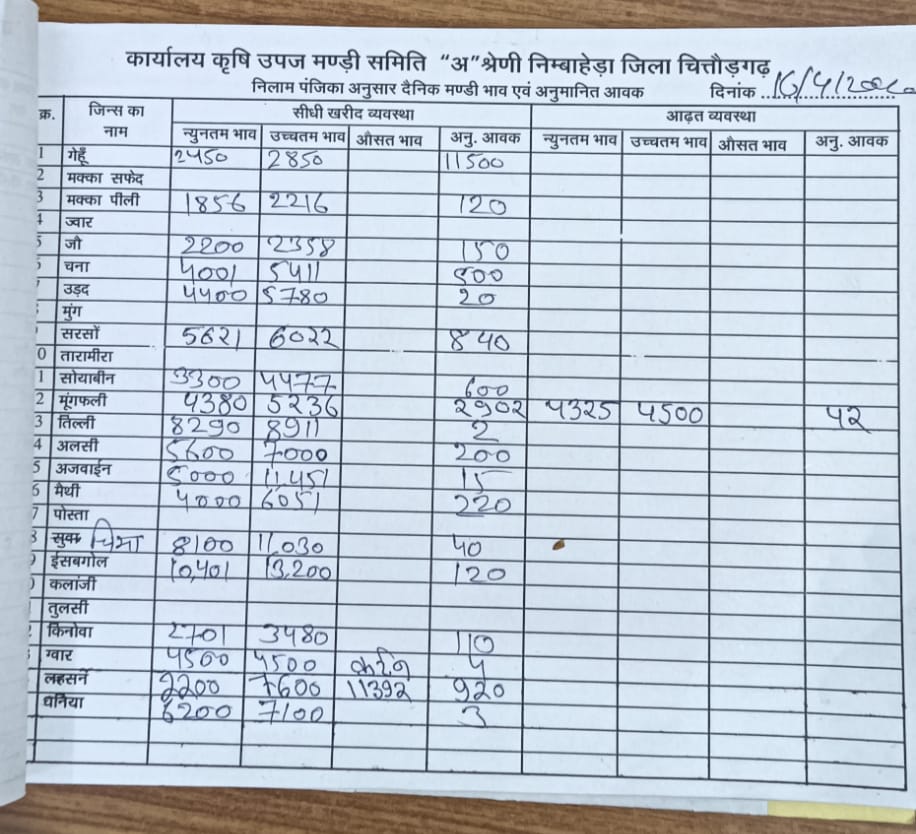 कार्यालय कृषि उपज मण्ड़ी समिति "अ"श्रेणी निम्बाहेड़ा जिला चित्तौड़गढ़
निलाम पंजिका अनुसार दैनिक मण्डी भाव एवं अनुमानित आवक दिनांक 16/4/202
क्र. जिन्स का नाम सीधी खरीद व्यवस्था आढ़त व्यवस्था
न्युनतम भाव उच्चतम भाव औसत भाव अनु. आवक न्युनतम भाव उच्चतम भाव औसत भाव अनु. आवक
1 गेहूँ 2450 2850 11500
2 मक्का सफेद
3 मक्का पीली 1856 2216 120
4 ज्वार
5 जौ 2200 2358 150
चना 4001 5411 500
उड़द 4400 5780 20
मुंग
सरसों 5621 6022 840
0 तारामीरा
1 सोयाबीन 3300 4477 600
2 मूंगफली 4380 5236 2902 4325 4500 42
3 तिल्ली 8290 8911 2
4 अलसी 5600 7000 200
5 अजवाईन 5000 11,451 15
6 मैथी 4000 6051 220
7 पोस्ता
8 सुवा चिया 8100 11,030 40
ईसबगोल 10,401 13,200 120
कलांजी
तुलसी
किनोवा 2701 3480 110
ग्वार 4500 4500 4
लहसन 2200 7600 11392 920
धनिया 6200 7100 3